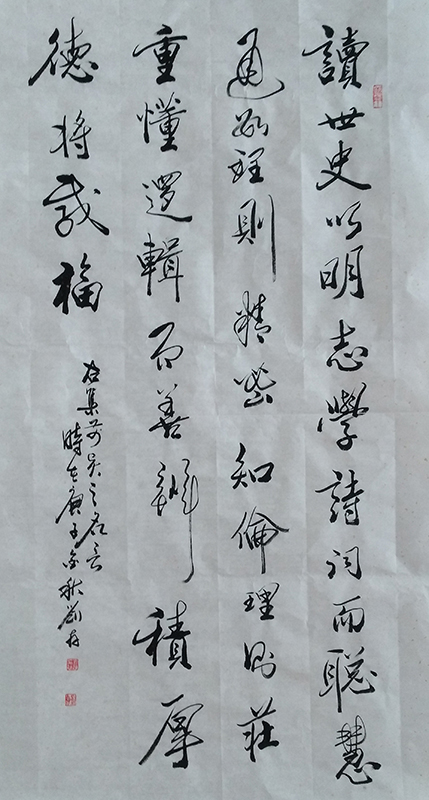 讀世史以明志學詩詞而聰慧
通數理則精密知倫理則莊
重懂邏輯而善辯積厚
德將載福
右集前賢之名言
時在庚子金秋